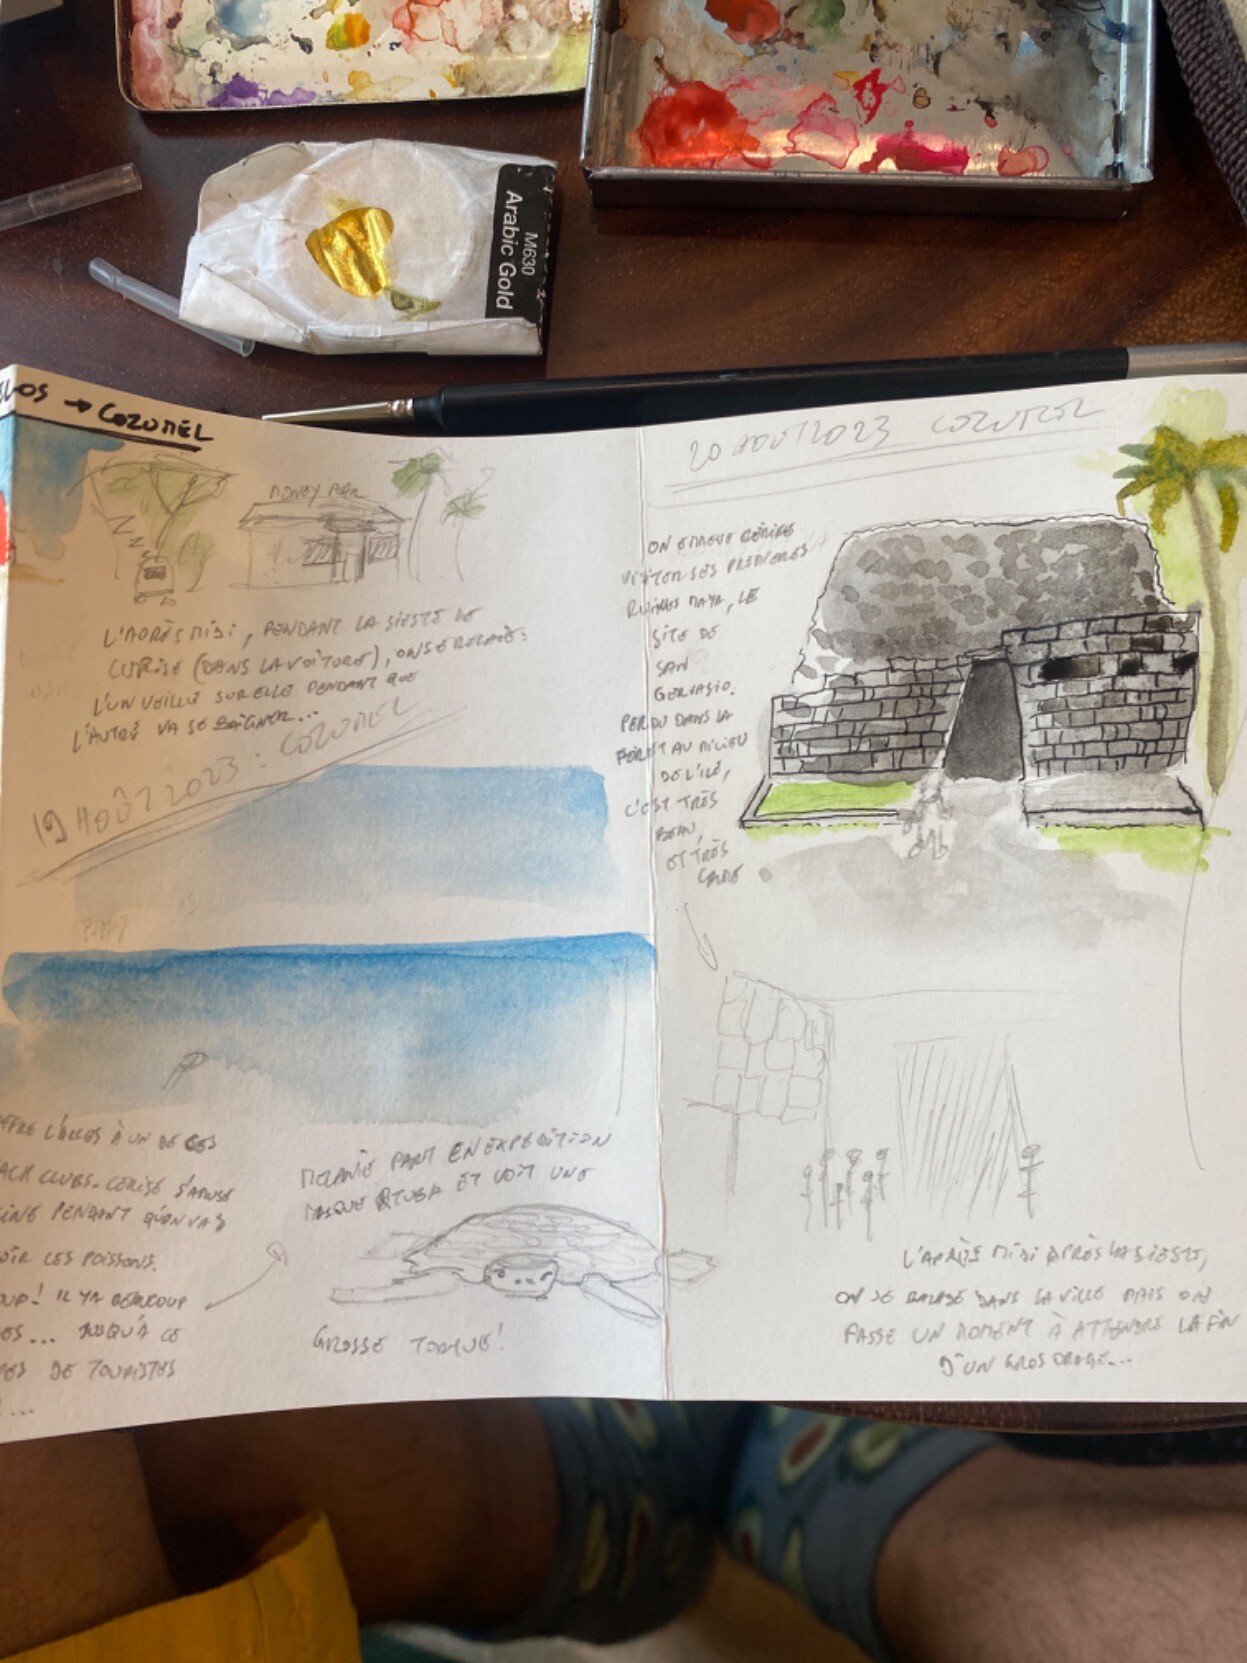 M630
Arabic Gold
→ COZUMEL
MONEY BAR
L'APRÈS MIDI, PENDANT LA SIESTE DE
CERISE (DANS LA VOITURE), ON SE RELAIE:
L'UN VEILLE SUR ELLE PENDANT QUE
L'AUTRE VA SE BAIGNER...
19 AOÛT 2023 : COZUMEL
L'ACCÈS À UN DE CES
CLUBS. CERISE S'AMUSE
PENDANT QU'ON VAS
LES POISSONS.
! IL Y A BEAUCOUP
... JUSQU'À CE
DE TOURISTES
...
MELANIE PART EN EXPEDITION
MASQUE & TUBA ET VOIT UNE
GROSSE TORTUE!
20 AOUT 2023 COZUMEL
ON EMMENE CERISE
VISITER SES PREMIERES
RUINES MAYA, LE
SITE DE
SAN
GERVASIO.
PERDU DANS LA
FORÊT AU MILIEU
DE L'ILE,
C'EST TRÈS
BEAU,
ET TRÈS
L'APRÈS MIDI APRÈS LA SIESTE,
ON SE BALADE DANS LA VILLE MAIS ON
PASSE UN MOMENT À ATTENDRE LA FIN
D'UN GROS ORAGE...